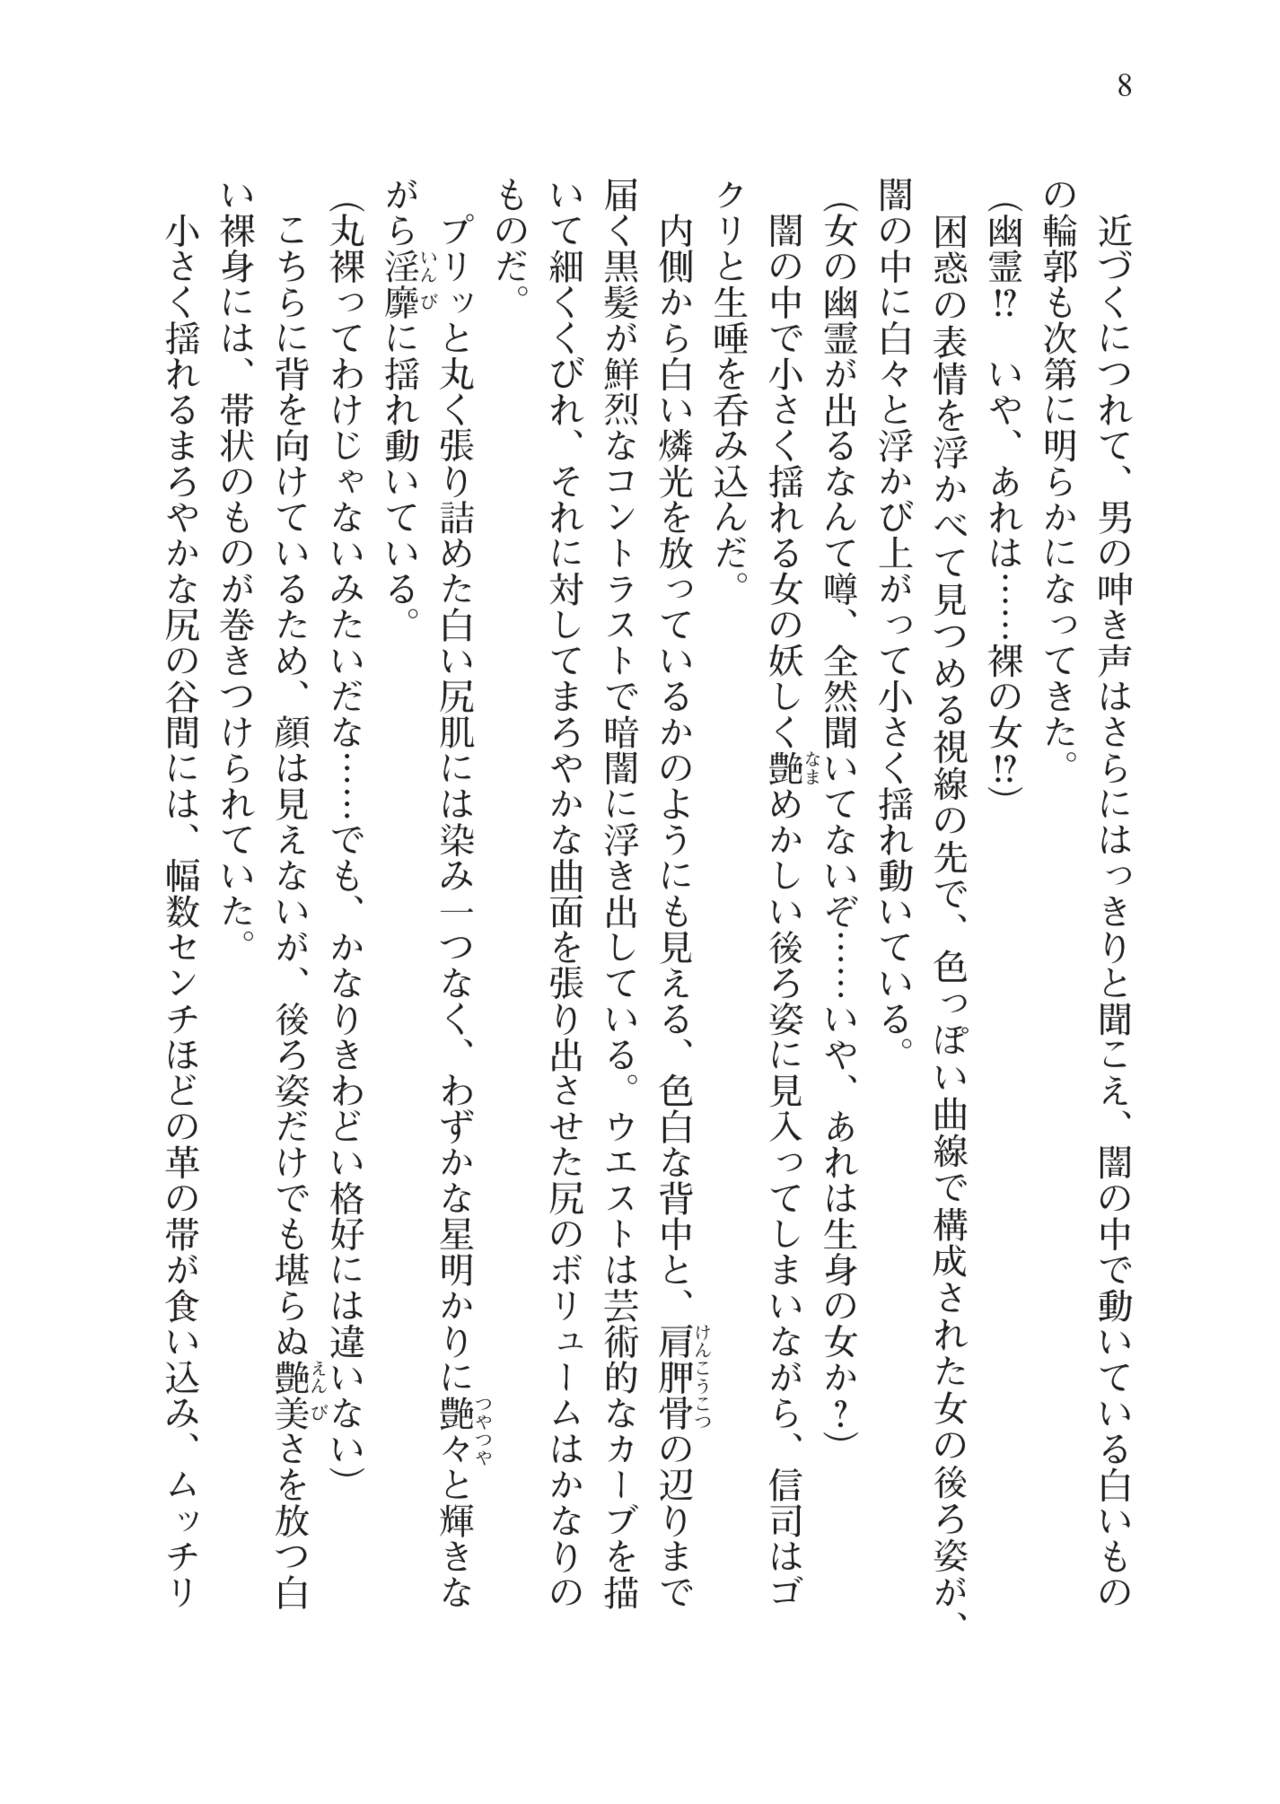 8
　近づくにつれて、男の呻き声はさらにはっきりと聞こえ、闇の中で動いている白いもの
の輪郭も次第に明らかになってきた。
（幽霊!?　いや、あれは……裸の女!?）
　困惑の表情を浮かべて見つめる視線の先で、色っぽい曲線で構成された女の後ろ姿が、
闇の中に白々と浮かび上がって小さく揺れ動いている。
（女の幽霊が出るなんて噂、全然聞いてないぞ……いや、あれは生身の女か？）
　闇の中で小さく揺れる女の妖しく艶めかしい後ろ姿に見入ってしまいながら、信司はゴ
クリと生唾を呑み込んだ。
　内側から白い燐光を放っているかのようにも見える、色白な背中と、肩胛骨の辺りまで
届く黒髪が鮮烈なコントラストで暗闇に浮き出している。ウエストは芸術的なカーブを描
いて細くくびれ、それに対してまろやかな曲面を張り出させた尻のボリュームはかなりの
ものだ。
　プリッと丸く張り詰めた白い尻肌には染み一つなく、わずかな星明かりに艶々と輝きな
がら淫靡に揺れ動いている。
（丸裸ってわけじゃないみたいだな……でも、かなりきわどい格好には違いない）
　こちらに背を向けているため、顔は見えないが、後ろ姿だけでも堪らぬ艶美さを放つ白
い裸身には、帯状のものが巻きつけられていた。
　小さく揺れるまろやかな尻の谷間には、幅数センチほどの革の帯が食い込み、ムッチリ